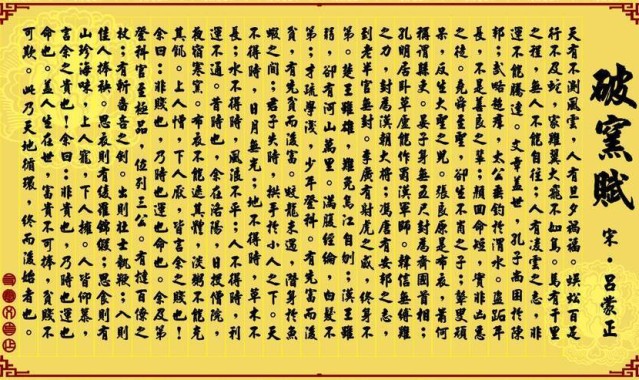 破窯賦
宋·呂蒙正
天有不測風雲，人有旦夕禍福。蜈蚣百足
行不及蛇，家雞翼大飛不如鳥。馬有千里
之程，無人不能自往；人有凌雲之志，非
運不能騰達。文章蓋世，孔子尚困於陳
邦；武略超群，太公垂釣於渭水。盜跖年
長，不是善良之輩；顏回命短，實非凶惡
之徒。堯舜至聖，卻生不肖之子；瞽叟頑
呆，反生大聖之兒。張良原是布衣，蕭何
稱謂縣吏。晏子身無五尺封為齊國首相；
孔明居臥草廬能作蜀漢軍師。韓信無縛雞
之力，封為漢朝大將；馮唐有安邦之志，
到老半官無封。李廣有射虎之威，終身不
第。楚王雖雄，難免烏江自刎；漢王雖
弱，卻有河山萬里。滿腹經綸，白髮不
第；才疏學淺，少年登科。有先富而後
貧，有先貧而後富。蛟龍未遇，潛身於魚
蝦之間；君子失時，拱手於小人之下。天
不得時，日月無光；地不得時，草木不
長；水不得時，風浪不平；人不得時，利
運不通。昔時也，余在洛陽，日投僧院，
夜宿寒窯。布衣不能遮其體，淡粥不能充
其飢。上人憎，下人厭，皆言余之賤也！
余曰：非賤也，乃時也運也命也。余及第
登科官至極品，位列三公。有撻百僚之
杖；有斬嗇吝之劍。出則壯士執鞭；入則
佳人捧秧。思衣則有綾羅錦緞；思食則有
山珍海味。上人寵，下人擁。人皆仰慕，
言余之貴也！余曰：非貴也，乃時也運也
命也。蓋人生在世，富貴不可捧，貧賤不
可欺。此乃天地循環，終而復始者也。